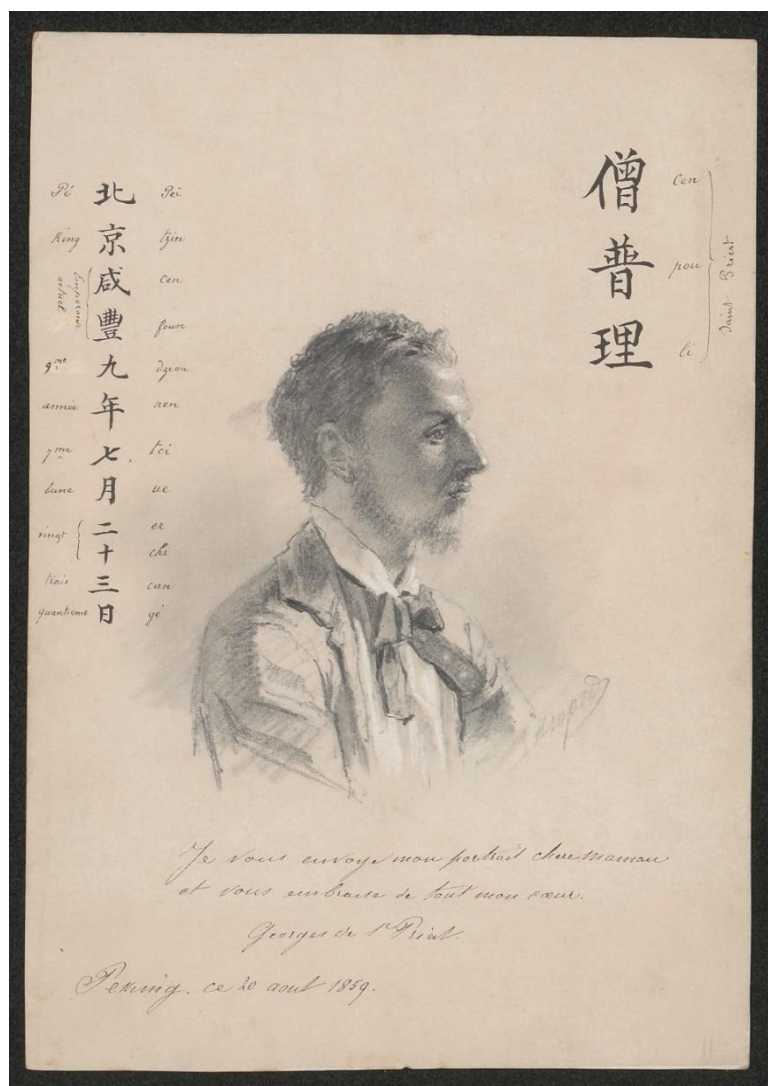 僧普理
Cen
pou
li
Saint Priest
北京咸豐九年七月二十三日
Pé
King
Empereur actuel
9me
année
7me
lune
vingt
trois
quantieme
Peï
tzin
cen
foun
ren
tci
ue
er
che
can
gé
Je vous envoye mon portrait chere maman
et vous embrasse de tout mon cœur.
Georges de St Priest.
Peking. ce 20 aout 1859.